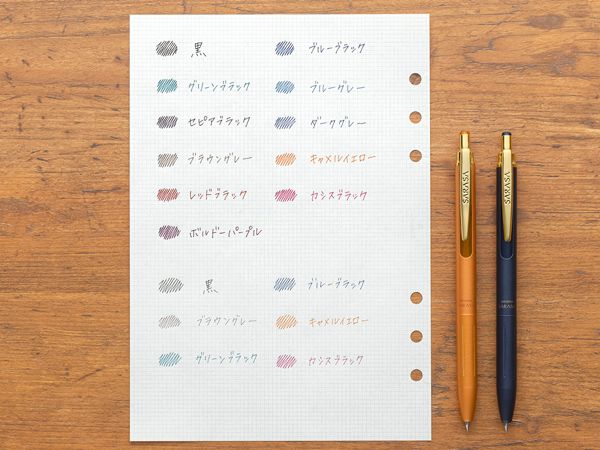 黒 ブルーブラック
グリーンブラック ブルーグレー
セピアブラック ダークグレー
ブラウングレー キャメルイエロー
レッドブラック カシスブラック
ボルドーパープル
黒 ブルーブラック
ブラウングレー キャメルイエロー
グリーンブラック カシスブラック
SARASA
SARASA
SARASA